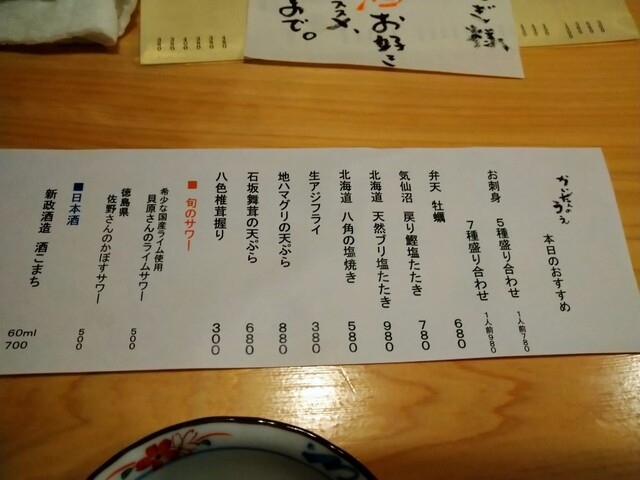 本日のおすすめ
お刺身 5種盛り合わせ 1人前780
7種盛り合わせ 1人前980
弁天 牡蠣 680
気仙沼 戻り鰹塩たたき 780
北海道 天然ブリ塩たたき 980
北海道 八角の塩焼き 580
生アジフライ 380
地ハマグリの天ぷら 880
石坂舞茸の天ぷら 680
八色椎茸握り 300
■旬のサワー
希少な国産ライム使用
貝原さんのライムサワー 500
徳島県
佐野さんのかぼすサワー 500
■日本酒
新政酒造 酒こまち 60ml 700
お好き
まで。